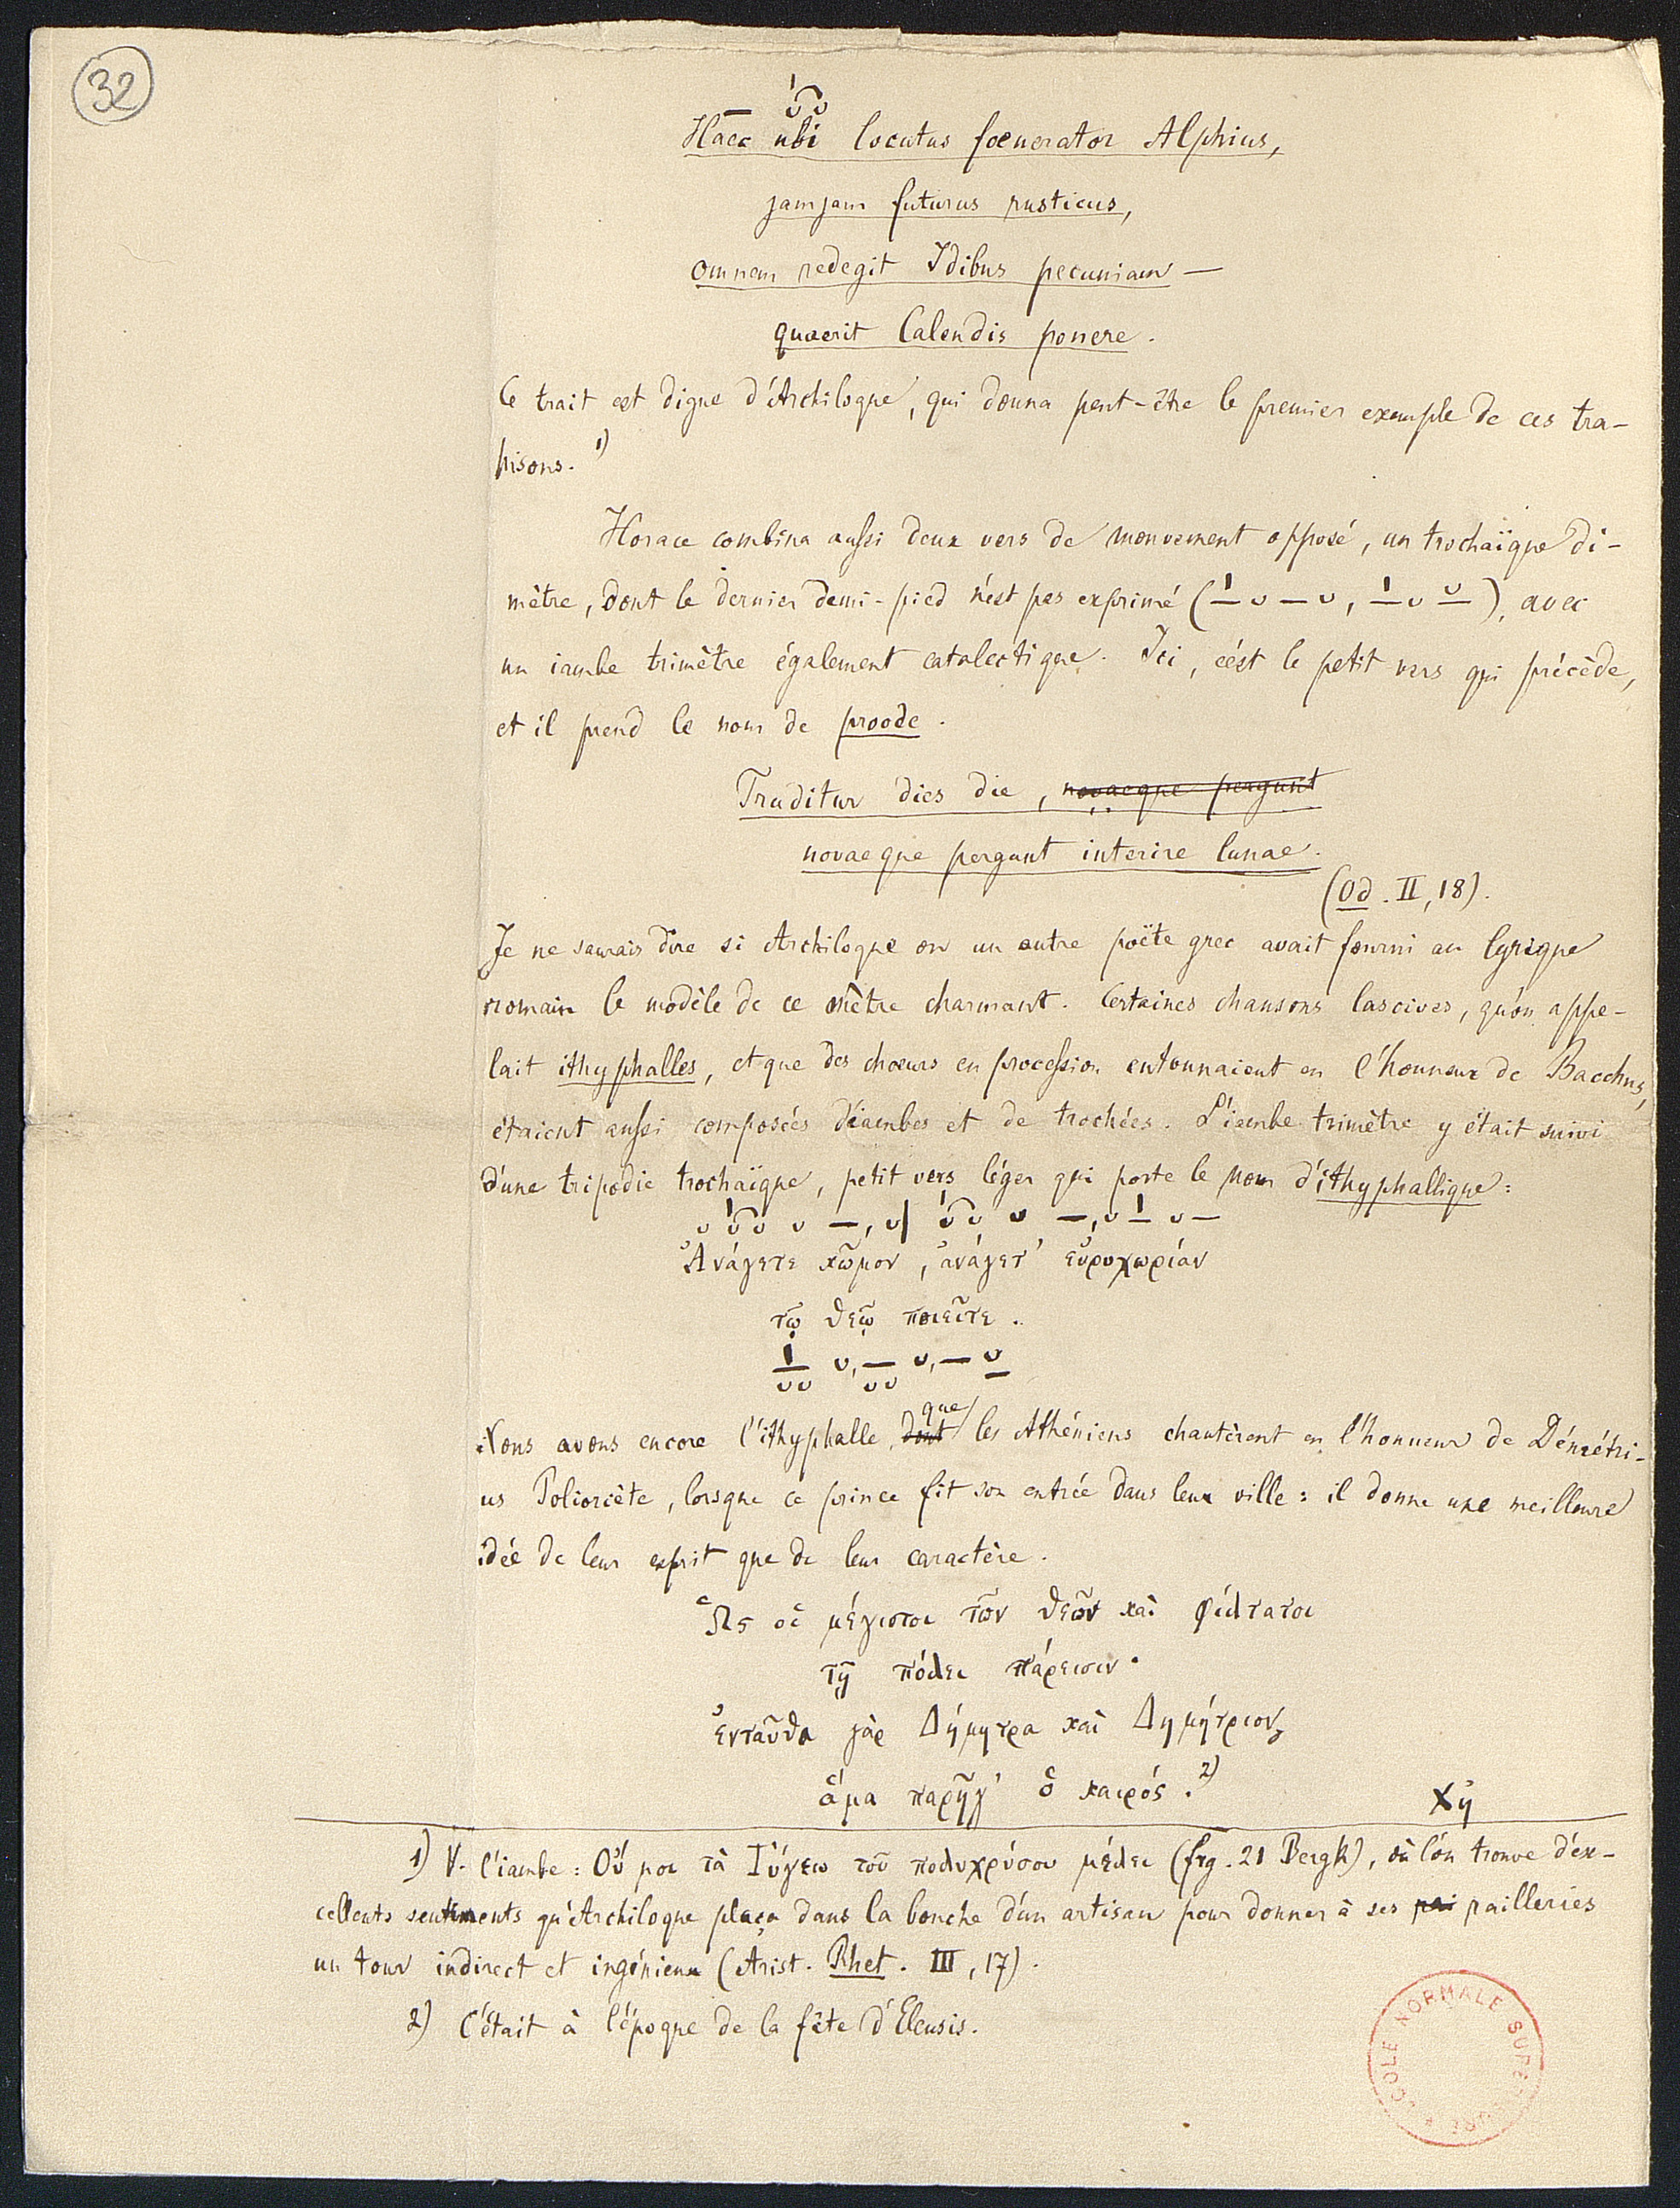 32
Haec ubi locutus foenerator Alphius,
jamjam futurus rusticus,
omnem redegit Idibus pecuniam —
quaerit Calendis ponere.
Ce trait est digne d'Archiloque, qui donna peut-être le premier exemple de ces tra-
hisons. 1)
Horace combina aussi deux vers de mouvement opposé, un trochaïque di-
mètre, dont le dernier demi-pied n'est pas exprimé (–́ ᴗ – ᴗ, –́ ᴗ ᴗ̲), avec
un iambe trimètre également catalectique. Ici, c'est le petit vers qui précède,
et il prend le nom de proode.
Truditur dies die, novaeque pergunt
novaeque pergunt interire lunae.
(Od. II, 18).
Je ne saurais dire si Archiloque ou un autre poëte grec avait fourni au lyrique
romain le modèle de ce mètre charmant. Certaines chansons lascives, qu'on appe-
lait ithyphalles, et que des choeurs en procession entonnaient en l'honneur de Bacchus,
étaient aussi composées d'iambes et de trochées. L'iambe trimètre y était suivi
d'une tripodie trochaïque, petit vers léger qui porte le nom d'ithyphallique:
ᴗ ᴗ́ᴗ ᴗ –, ᴗ| ᴗ́ᴗ ᴗ –, ᴗ –́ ᴗ –
Ἀνάγετε κῶμον, ἀνάγετ' εὐρυχωρίαν
τῷ θεῷ ποιεῖτε.
–́ ᴗ, – ᴗ, – ᴗ̲
ᴗᴗ ᴗᴗ
que
Nous avons encore l'ithyphalle dont les Athéniens chantèrent en l'honneur de Démétri-
us Poliorcète, lorsque ce prince fit son entrée dans leur ville: il donne une meilleure
idée de leur esprit que de leur caractère.
Ὡς οἱ μέγιστοι τῶν θεῶν καὶ φίλτατοι
τῇ πόλει πάρεισιν·
ἐνταῦθα γὰρ Δήμητρα καὶ Δημήτριον
ἅμα παρῆγ' ὁ καιρός. 2)
Χἠ
1) V. l'iambe: Οὔ μοι τὰ Γύγεω τοῦ πολυχρύσου μέλει (frg. 21 Bergk), où l'on trouve d'ex-
cellents sentiments qu'Archiloque plaça dans la bouche d'un artisan pour donner à ses pai railleries
un tour indirect et ingénieux (Arist. Rhet. III, 17).
2) C'était à l'époque de la fête d'Eleusis.
ECOLE NORMALE SUPERIEURE